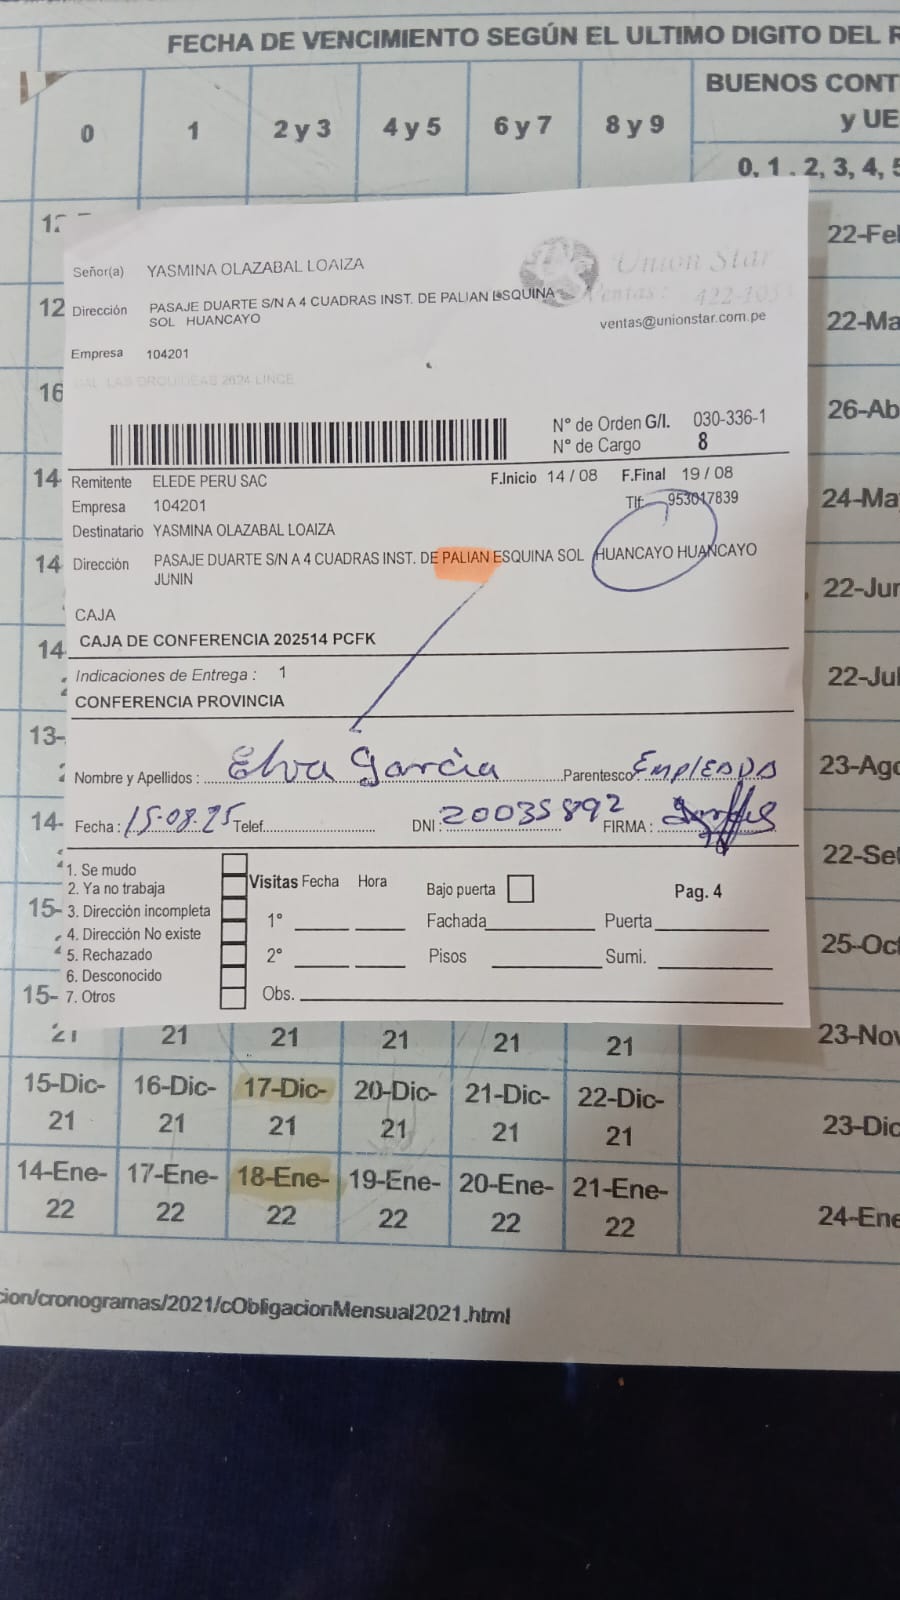 FECHA DE VENCIMIENTO SEGÚN EL ULTIMO DIGITO DEL
0 1 2 y 3 4 y 5 6 y 7 8 y 9
BUENOS CONT
y UE
0, 1 . 2, 3, 4, 5
22-Feb
22-Ma
26-Ab
24-May
22-Jun
22-Jul
23-Ago
22-Set
25-Oct
23-Nov
23-Dic
24-Ene
Señor(a) YASMINA OLAZABAL LOAIZA
Union Star
Ventas: 422-105
Dirección PASAJE DUARTE S/N A 4 CUADRAS INST. DE PALIAN ESQUINA
SOL HUANCAYO
ventas@unionstar.com.pe
Empresa 104201
CAL LAS ORQUIDEAS 2624 LINCE
N° de Orden G/I. 030-336-1
N° de Cargo 8
Remitente ELEDE PERU SAC F.Inicio 14 / 08 F.Final 19 / 08
Empresa 104201 Tlf. 953017839
Destinatario YASMINA OLAZABAL LOAIZA
Dirección PASAJE DUARTE S/N A 4 CUADRAS INST. DE PALIAN ESQUINA SOL HUANCAYO HUANCAYO
JUNIN
CAJA
CAJA DE CONFERENCIA 202514 PCFK
Indicaciones de Entrega : 1
CONFERENCIA PROVINCIA
Nombre y Apellidos : Elva Garcia Parentesco EMPLEADA
Fecha : 15-08-25 Telef. DNI : 20035892 FIRMA :
1. Se mudo
2. Ya no trabaja
3. Dirección incompleta
4. Dirección No existe
5. Rechazado
6. Desconocido
7. Otros
Visitas Fecha Hora Bajo puerta Pag. 4
1° Fachada Puerta
2° Pisos Sumi.
Obs.
21 21 21 21 21 21
15-Dic- 16-Dic- 17-Dic- 20-Dic- 21-Dic- 22-Dic-
21 21 21 21 21 21
14-Ene- 17-Ene- 18-Ene- 19-Ene- 20-Ene- 21-Ene-
22 22 22 22 22 22
cion/cronogramas/2021/cObligacionMensual2021.html